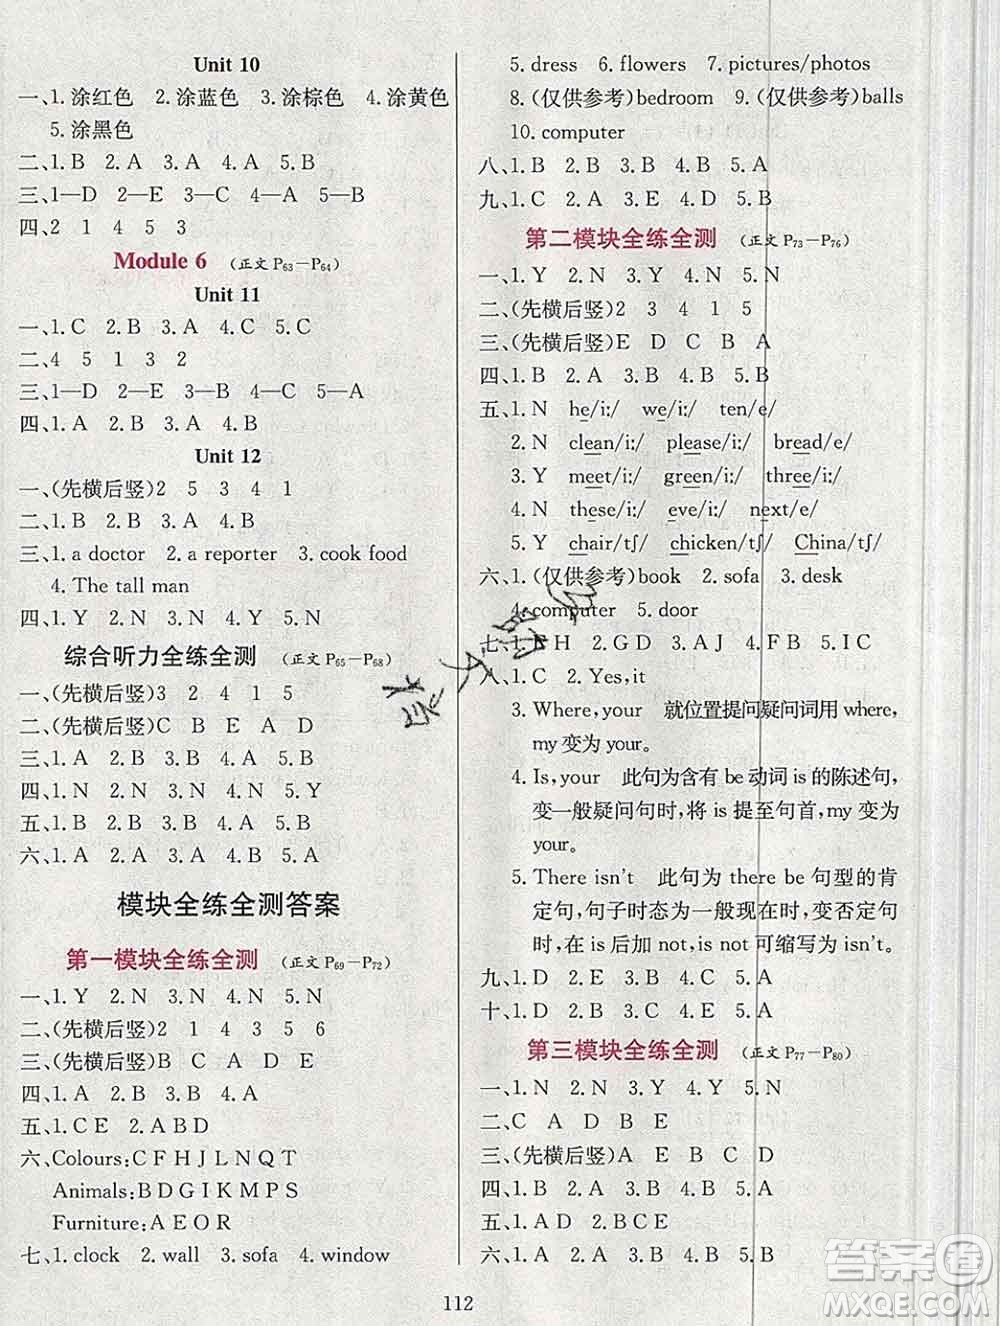 Unit 10
一、1.涂红色 2.涂蓝色 3.涂棕色 4.涂黄色
5.涂黑色
二、1.B 2.A 3.A 4.A 5.B
三、1—D 2—E 3—C 4—A 5—B
四、2 1 4 5 3
Module 6 (正文 P63—P64)
Unit 11
一、1.C 2.B 3.A 4.C 5.C
二、4 5 1 3 2
三、1—D 2—E 3—B 4—C 5—A
四、1.A 2.B 3.A 4.B
Unit 12
一、(先横后竖)2 5 3 4 1
二、1.B 2.A 3.A 4.B
三、1.a doctor 2.a reporter 3.cook food
4.The tall man
四、1.Y 2.N 3.N 4.Y 5.N
综合听力全练全测 (正文 P65—P68)
一、(先横后竖)3 2 4 1 5
二、(先横后竖)C B E A D
三、1.A 2.B 3.A 4.B 5.A
四、1.N 2.Y 3.N 4.N 5.Y
五、1.B 2.B 3.A 4.B 5.A
六、1.A 2.A 3.A 4.B 5.B
模块全练全测答案
第一模块全练全测 (正文 P69—P72)
一、1.Y 2.N 3.N 4.N 5.N
二、(先横后竖)2 1 4 3 5 6
三、(先横后竖)B C A D E
四、1.A 2.A 3.B 4.A
五、1.C E 2.A B D
六、Colours:C F H J L N Q T
Animals:B D G I K M P S
Furniture:A E O R
七、1.clock 2.wall 3.sofa 4.window
5.dress 6.flowers 7.pictures/photos
8.(仅供参考)bedroom 9.(仅供参考)balls
10.computer
八、1.B 2.B 3.B 4.B 5.A
九、1.C 2.A 3.E 4.D 5.B
第二模块全练全测 (正文 P73—P76)
一、1.Y 2.N 3.Y 4.N 5.N
二、(先横后竖)2 3 4 1 5
三、(先横后竖)E D C B A
四、1.B 2.A 3.B 4.A 5.B
五、1.N he/i:/ we/i:/ ten/e/
2.N clean/i:/ please/i:/ bread/e/
3.Y meet/i:/ green/i:/ three/i:/
4.N these/i:/ eve/i:/ next/e/
5.Y chair/tʃ/ chicken/tʃ/ China/tʃ/
六、1.(仅供参考)book 2.sofa 3.desk
4.computer 5.door
七、1. H 2.G D 3.A J 4.F B 5.I C
八、1.C 2.Yes,it
3.Where,your 就位置提问疑问词用 where,
my 变为 your。
4.Is,your 此句为含有 be 动词 is 的陈述句,
变一般疑问句时,将 is 提至句首,my 变为
your。
5.There isn't 此句为 there be 句型的肯
定句,句子时态为一般现在时,变否定句
时,在 is 后加 not,is not 可缩写为 isn't。
九、1.D 2.E 3.B 4.C 5.A
十、1.D 2.E 3.B 4.C 5.A
第三模块全练全测 (正文 P77—P80)
一、1.N 2.N 3.Y 4.Y 5.N
二、C A D B E
三、(先横后竖)A E B D C
四、1.B 2.A 3.B 4.A 5.B
五、1.A D 2.B C E
六、1.B 2.A 3.B 4.B 5.B
112
答案圈
MXQE.COM